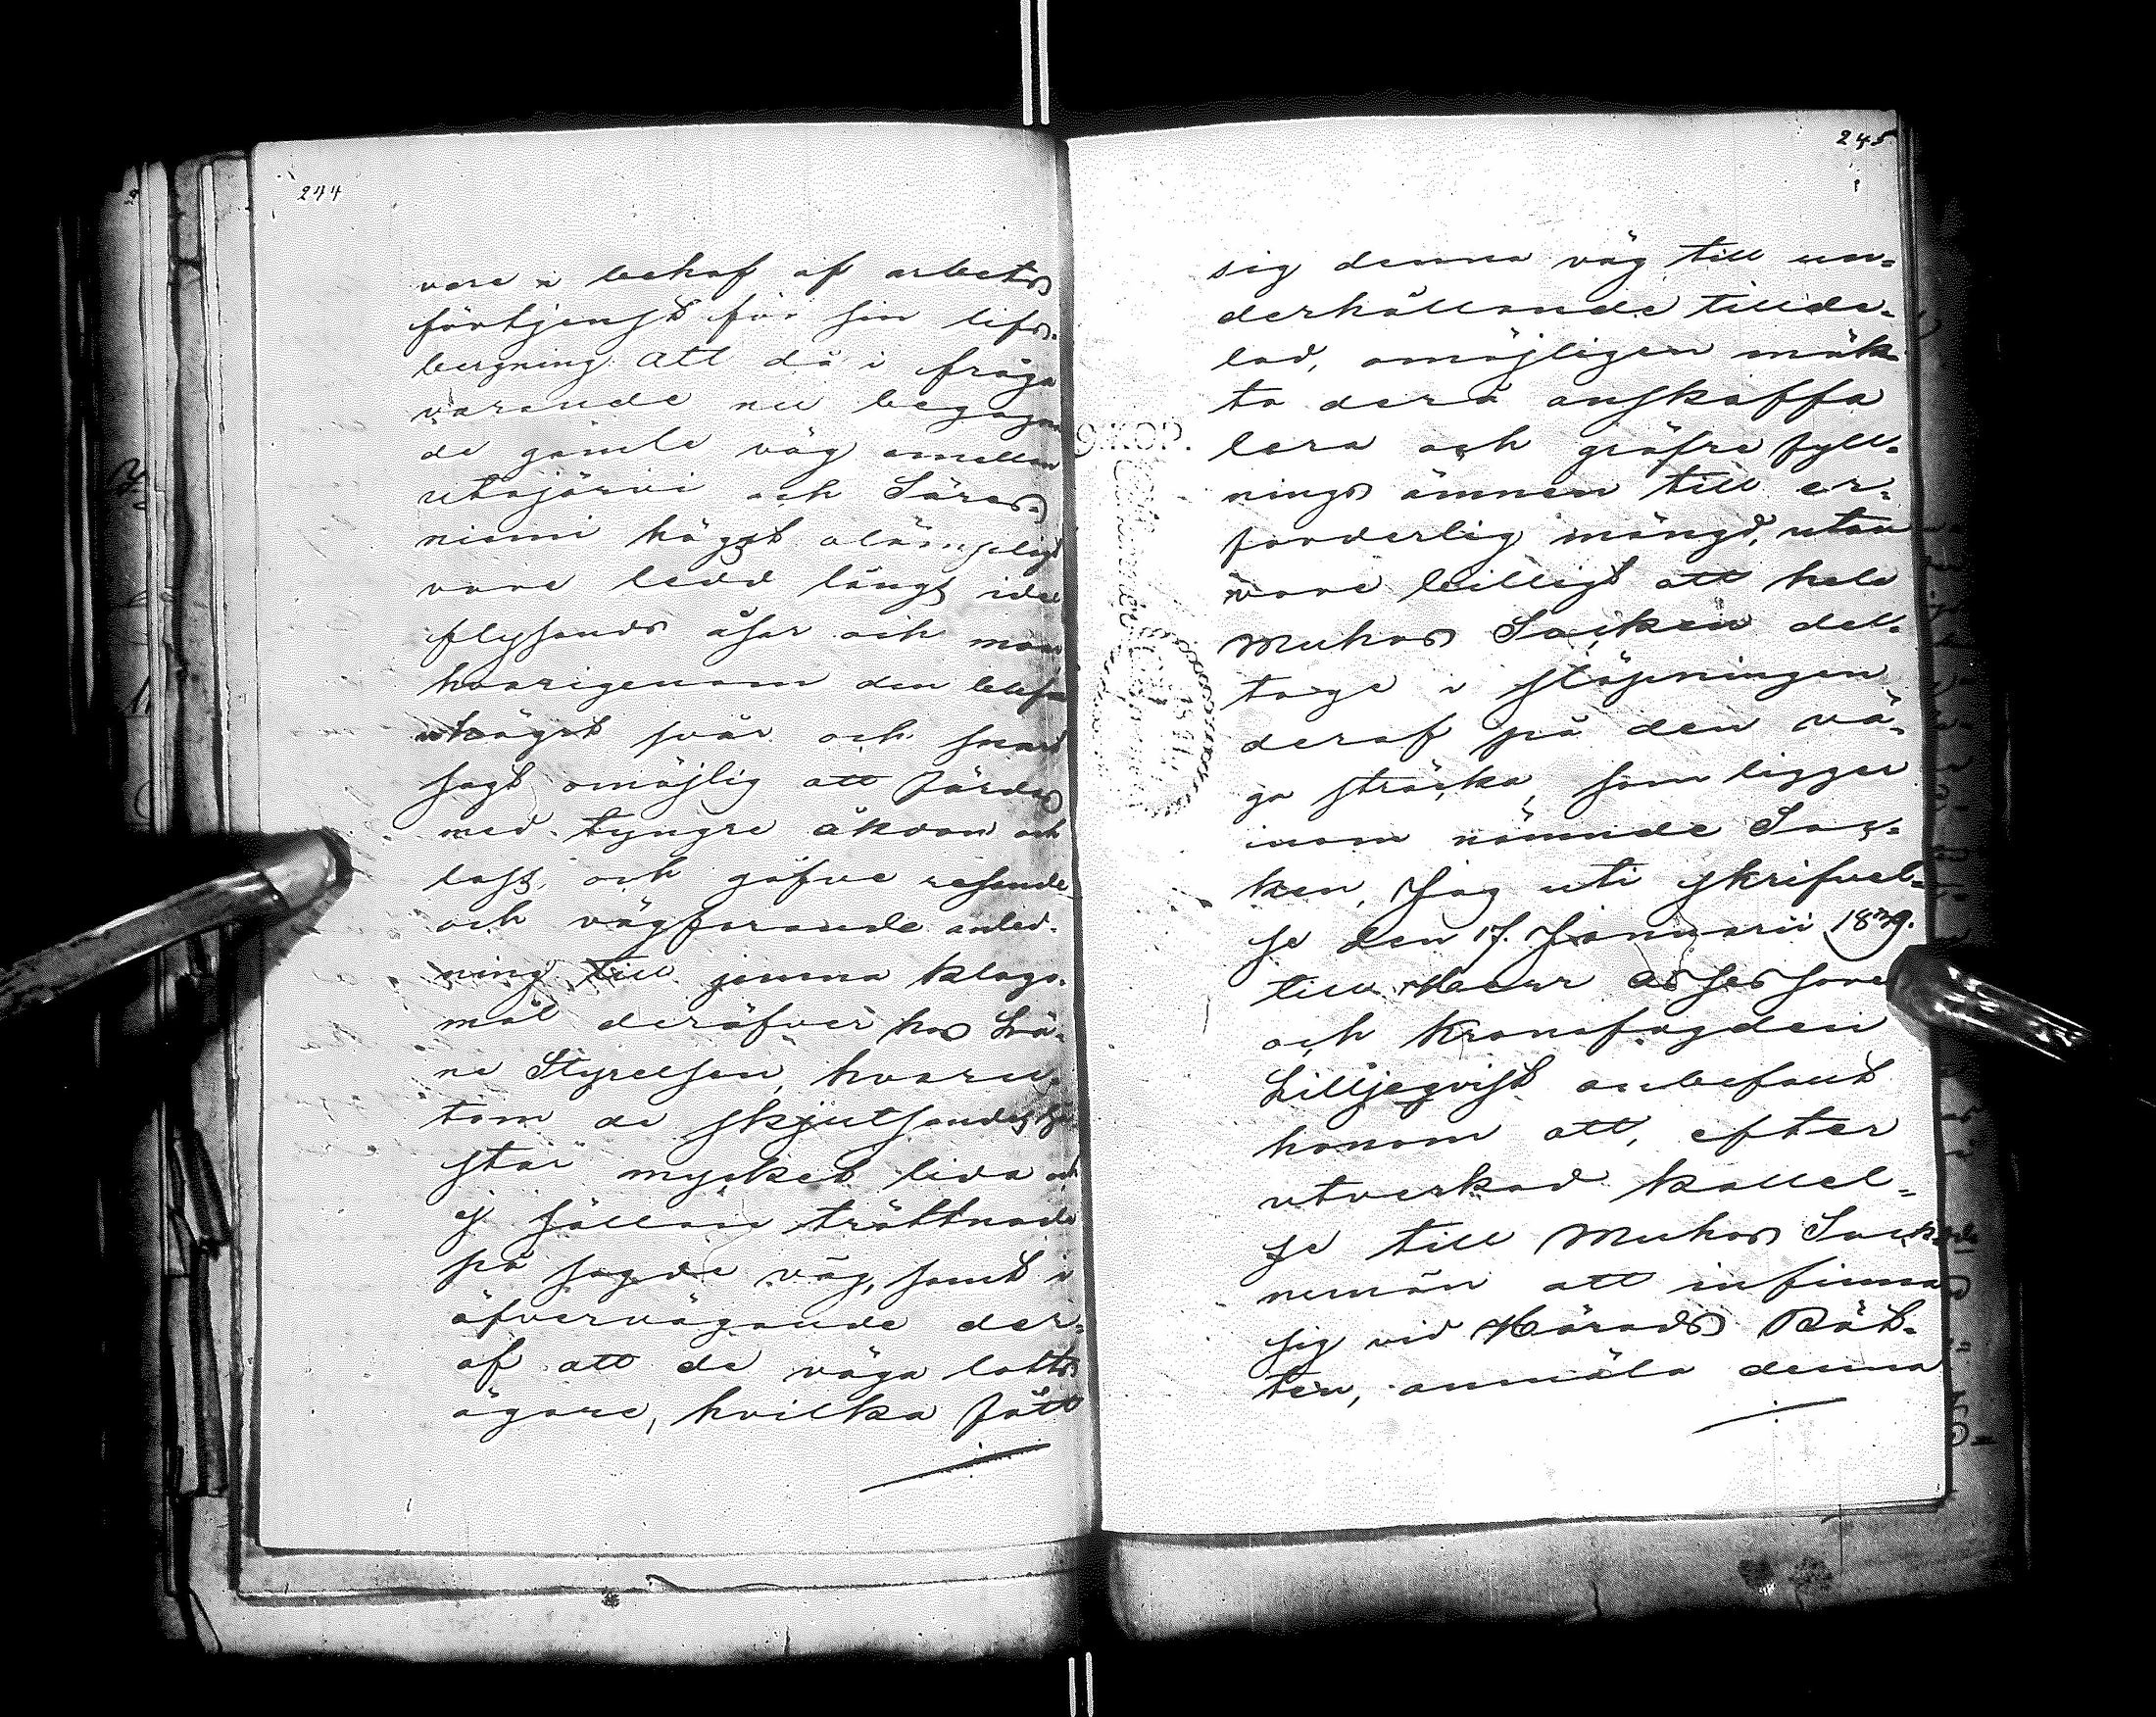 244
vore i behof af arbets
förtjenst för sin lifs-
bergning att då i fråga
varande nu begagna
de gamle väg emellan
Utajärvi och Säräs-
niemi högst olämpligt
vore ledd längs idel
flysands åsar och moar
hvarigenom den blefve
utrögst svår och snart
sagt omöjlig att färdas
med tyngre åkdon och
lass, och gåfve resande
och vägfarande anled-
ning till jemna klago-
mål deröfver hos Lä-
ne Styrelsen, hvaru-
tom de skjutsandes hä-
star mycket lida och
ej sällan tröttnade
på sagde väg, samt i
öfvervägande der-
af att de väga lotts
ägare, hvilka fått
245
sig denna väg till un-
derhållande tillde-
lad, omöjligen mäk-
ta derå anskaffa
lera och gröfre fyll-
nings ämnen till er-
forderlig mängd, utan
vore billigt att hela
Muhos Socken del-
toge i släpningen
deraf på den vä-
ga sträcka, som ligger
inom nämnde Soc-
ken, Jag uti skrifvel-
se den 17. Januarii 1829.
till Herr Assessoren
och Kronofogden
Lilljeqvist anbefalt
honom att, efter
utverkad kallel-
se till Muhos Socke-
nemän att infinna
sig vid Härads Rät-
ten, anmäla denna